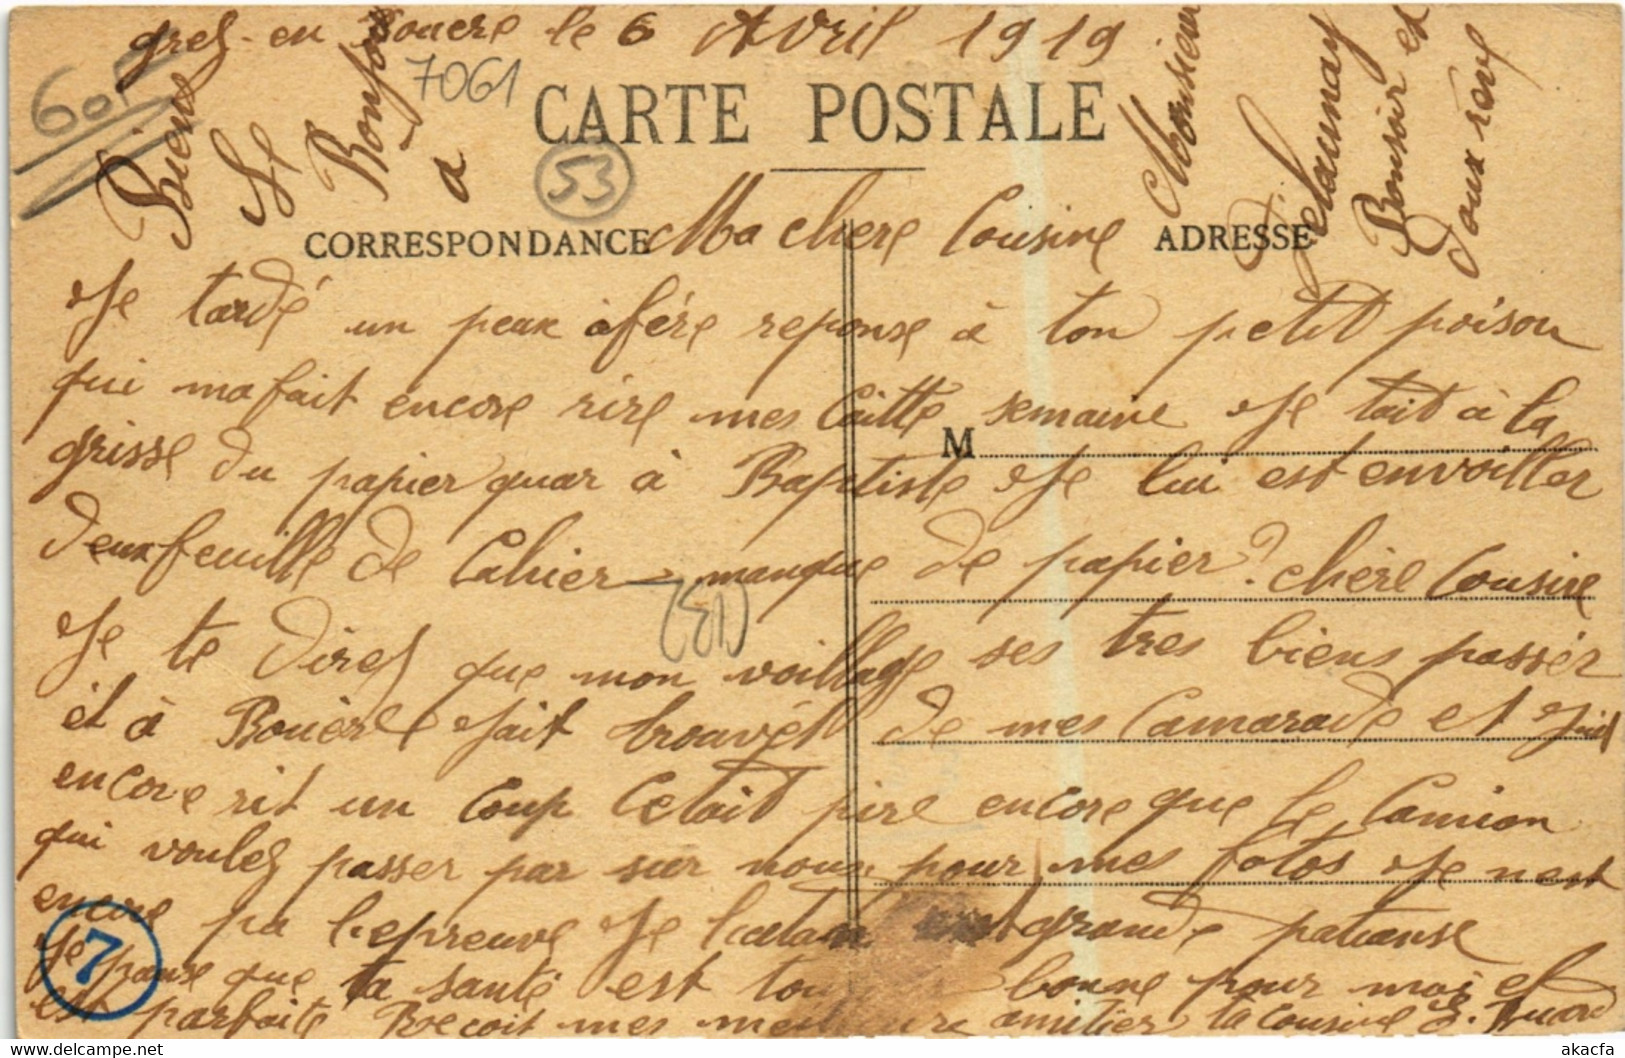 grez-en Bouere le 6 Avril 1919
60F
7061
CARTE POSTALE
53
Biens
Bonjour
a
Monsieur
Delaunay
Bonsoir et
doux reve
CORRESPONDANCE
ADRESSE
Ma chere Cousine
Je tardé un peux àfére reponse à ton petit poison
qui ma fait encore rire mes Caitte semaine Je tait à la
grisse du papier quar à Baptiste Je lui est envoiller
M
deux feuille de Cahier manque de papier? chère Cousine
(EI)
Je te direz que mon voillage ses tres biens passér
et à Bouère Jait trouvét de mes Camarade et Jait
encore rit un Coup Cetait pire encore que le Camion
qui voulez passer par sur nous pour mes fotos Je nent
encore pa l'epreuve Je grande patianse
7
Je panse que ta santé est bonne pour moi el
est parfaite Recoit mes amitier ta Cousine
akacfa